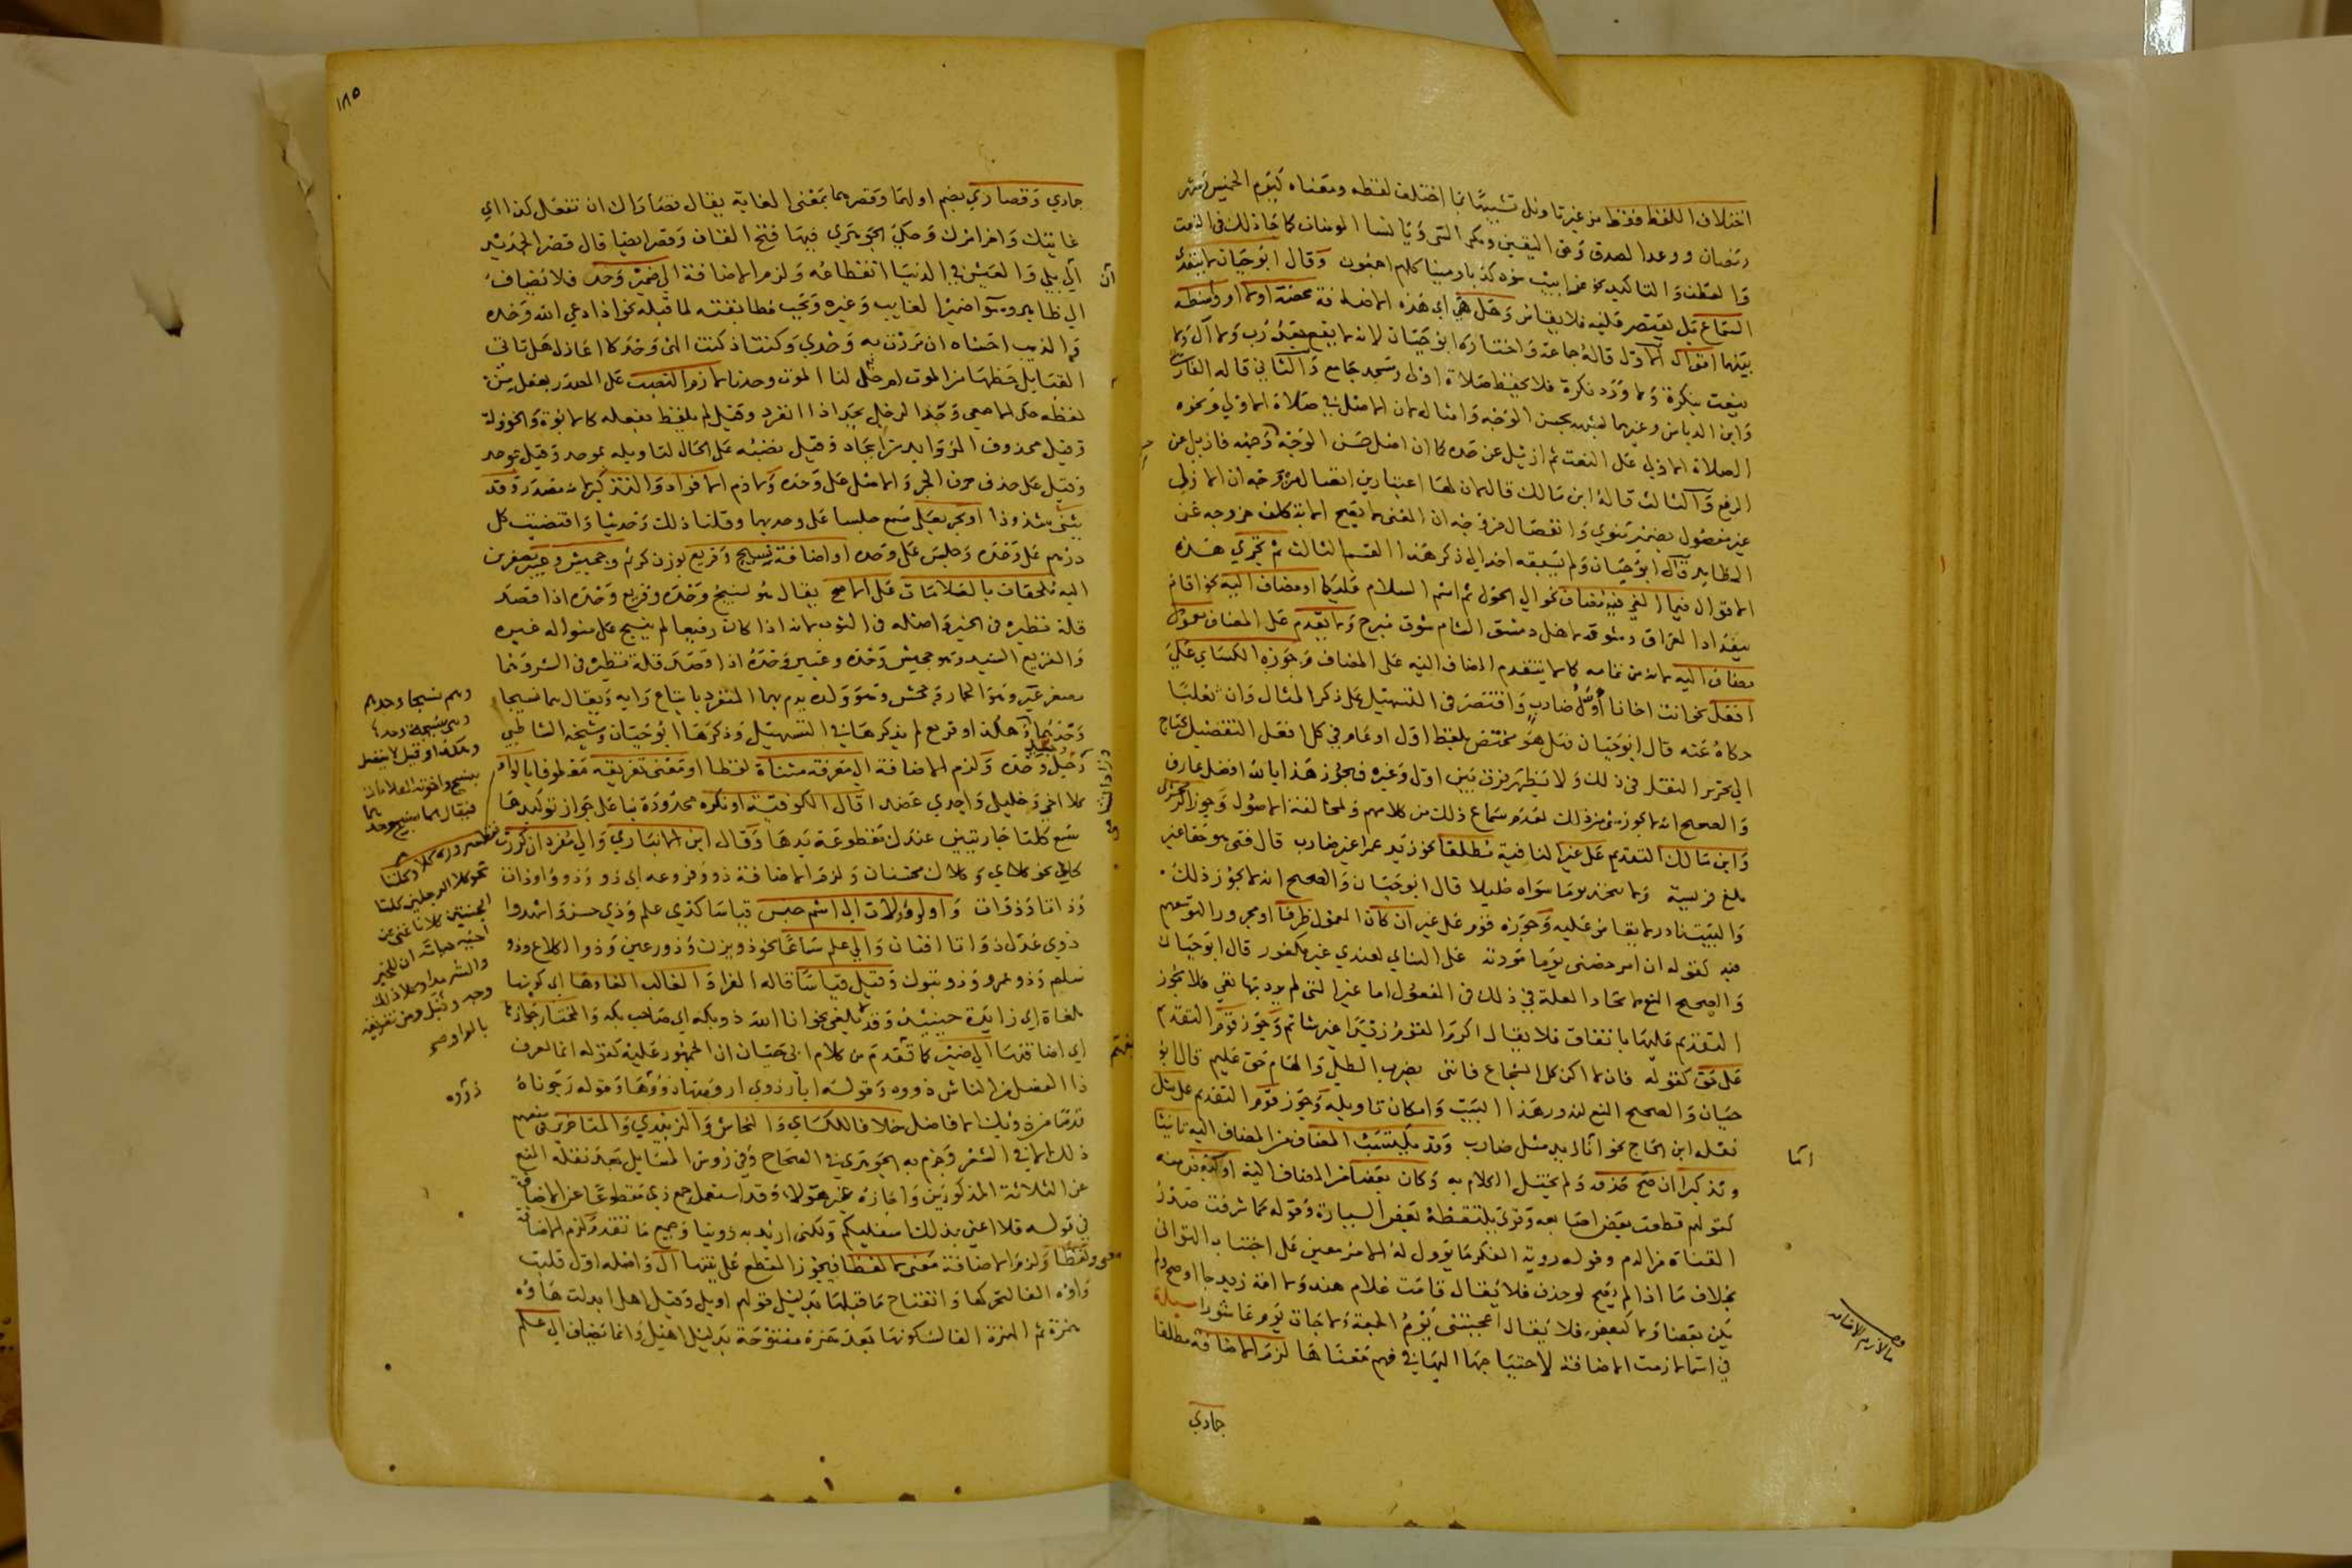 اختلاف اللفظ فقط من غير تاويل تشبيها بما اختلف لفظه ومعناه كيوم الخميس وشهر
رمضان ووعد الصدق وحق اليقين ومكر السئ ويا نسا المومنات كما جاز ذلك في النعت
والعطف والتاكيد نحو غرابيب سود كذبا ومينا كلهم اجمعون وقال ابو حيان لا يتعدى
السماع بل يقتصر عليه فلا يقاس وهل هي اي هذه الاضافة محضة اولا او واسطة
بينهما اقوال الاول قاله جماعة واختاره ابو حيان لانه لا يقع بعد رب ولا ال ولا
ينعت بنكرة ولا ورد نكرة فلا يحفظ صلاة اولى ومسجد جامع والثاني قاله الفارسي
وابن الدباس وغيرهما لشبهه بحسن الوجه وامثاله لان الاصل في صلاة الاولى ونحوه
الصلاة الاولى على النعت ثم ازيل عن حده كما ان اصل حسن الوجه حسن وجهه فازيل عن
الرفع والثالث قاله ابن مالك قال لان لها اعتبارين اتصال من وجه ان الاول
غير مفصول بضمير منوي وانفصال من وجه ان المعنى لا يصح الا بتكلف خروجه عن
الظاهر قال ابو حيان ولم يسبقه احد الى ذكر هذا القسم الثالث ثم تجري هذه
الاقوال فيما الغي فيه مضاف نحو الى الحول ثم اسم السلام عليكما او مضاف اليه نحو اقام
ببغداد العراق وشوقه لاهل دمشق الشام شوق مبرح ولا يتقدم على المضاف معمول
مضاف اليه لانه من تمامه كما لا يتقدم المضاف اليه على المضاف وجوزه الكسائي على
افعل نحو انت اخانا اول ضارب واقتصر في التسهيل على ذكر المثال وان ثعلبا
حكاه عنه قال ابو حيان فهل هو مختص بلفظ اول او عام في كل افعل التفضيل يحتاج
الى تحرير النقل في ذلك ولا يظهر فرق بين اول وغيره فيجوز هذا بالله افضل عارف
والصحيح انه لا يجوز شئ من ذلك لعدم سماع ذلك من كلامهم ولمخالفة الاصول وجوز الزمخشري
وابن مالك التقديم على غير النافية مطلقا نحو زيد عمرا غير ضارب قال فتى هو حقا غير
ملغ فريسة ولا تتخذ يوما سواه خليلا قال ابو حيان والصحيح انه لا يجوز ذلك
والبيت نادر لا يقاس عليه وجوزه قوم على غير ان كان المعمول ظرفا او مجرورا لتوسعهم
فيه كقوله ان امرا خصني يوما مودته على التنائي لعندي غير مكفور قال ابو حيان
والصحيح المنع لاتحاد العلة في ذلك في المفعول اما غير التي لم يرد بها نفي فلا يجوز
التقديم عليها باتفاق فلا يقال اكرم القوم زيدا غير شاتم وجوز قوم التقديم
على حق كقوله فان لا اكن كل الشجاع فانني بضرب الطلى والهام حق عليم قال ابو
حيان والصحيح المنع لندور هذا البيت وامكان تاويله وجوز قوم التقديم على مثل
نقله ابن الحاج نحو انا زيدا مثل ضارب وقد يكتسب المضاف من المضاف اليه تانيثا
وتذكيرا ان صح حذفه ولم يختل الكلام به وكان بعضا من المضاف اليه او كبعض منه
كقولهم قطعت بعض اصابعه وقرئ تلتقطه بعض السيارة وقوله كما شرقت صدر
القناة من الدم وقوله روية الفكر ما يوول له الامر معين على اجتناب التواني
بخلاف ما اذا لم يصح لو حذف فلا يقال قامت غلام هند ولا امة زيد جا او صح ولم
يكن بعضا ولا كبعض فلا يقال اعجبتني يوم الجمعة ولا جات يوم عاشورا مسئلة
في اسما لازمت الاضافة لاحتياجها اليها في فهم معناها لزم الاضافة مطلقا
جمادي
اما
ما لازم الاضافه
١٨٥
حمادي وقصاري بضم اولهما وقصرهما بمعنى الغاية يقال قصاراك ان تفعل كذا اي
غايتك واخر امرك وحكى الجوهري فيها فتح القاف وقصر ايضا قال قصر الجديد
الى بلى والعيش في الدنيا انقطاعه ولزم الاضافة الى ضمير وحد فلا يضاف
الى ظاهر وسوا ضمير الغايب وغيره وتجب مطابقته لما قبله نحو اذا دعي الله وحده
والذيب اخشاه ان مررت به وحدي وكنت اذ كنت الهي وحدكا اعاذل هل تاتي
القبايل حظها من الموت ام خلي لنا الموت وحدنا لازم النصب على المصدر بفعل من
لفظه حكى الاصمعي وحد الرجل يحد اذا انفرد وقيل لم يلفظ بفعله كالابوة والخؤولة
وقيل محذوف الزوايد من ايحاد وقيل نصبه على الحال لتاويله بموحد وقيل
وقيل على حذف حرف الجر والاصل على وحده ولازم الافراد والتذكير لانه مصدر وقد
يثنى شذوذا او يجر بعلى سمع جلسا على وحديهما وقلنا ذلك وحدينا واقتضيت كل
درهم على وحده وجلس على وحده او اضافة نسيج وقريع بوزن كريم وجحيش وعيير مصغرين
اليه ملحقات بالعلامات على الاصح يقال هو نسيج وحده وقريع وحده اذا قصد
قلة نظيره في الخير واصله في الثوب لانه اذا كان رفيعا لم ينسج على منواله غيره
والقريع السيد وهو جحيش وحده وعيير وحده اذا قصد قلة نظيره في الشر وهما
مصغر عير وهو الحمار وجحش وهو ولده يذم بهما المنفرد باتباع رايه ويقال هما نسيجا
وحدهما وهكذا وقريع لم يذكرها في التسهيل وذكرها ابو حيان وشيخه الشاطبي
رجيل وحده ولزم الاضافة الى معرفة مثناة لفظا او معنى تفريقه معطوفا بالواو
كلا اخي وخليلي واجدي عضدا قال الكوفية او نكرة محدودة بنا على جواز توكيدها
سمع كلتا جاريتين عندك مقطوعة يدها وقال ابن الانباري والى مفرد ان كررت
كلاي نحو كلاي وكلاك محسنان ولزم الاضافة ذو وفروعه اي ذو وذوو اوذات
وذاتا وذوات واولو واولات الى اسم جنس قياسا كذي علم وذي حسن واشهدوا
ذوي عدل ذواتا افنان والى علم سماعا نحو ذو يزن وذو رعين وذو الكلاع وذو
سلم وذو عمرو وذو تبوك وقيل قياسا قاله الفرا والغالب الغاوها اي كونها
ملغاة اي زايدة حينيذ وقد لا يلغي نحو انا الله ذو بكه اي صاحب بكه والمختار جوازها
اي اضافتها الى ضمير كما تقدم من كلام ابي حيان ان الجمهور عليه كقوله انما يعرف
ذا الفضل من الناس ذووه وقوله ابار ذوي ارومتها ذووها وقوله رجوناه
قدما من ذويك الافاضل خلافا للكسائي والنحاس والزبيدي والمتاخرين منعهم
ذلك الا في الشعر وجزم به الجوهري في الصحاح وفي رووس المسايل بعد نقله المنع
عن الثلاثة المذكورين واجازه غير هولا وقد استعمل جمع ذي مقطوعا عن الاضافة
في قوله فلا اعني بذلك اسفليكم ولكني اريد به الذوينا وجميع ما تقدم لازم الاضافة
معنى ولفظا ولزم الاضافة معنى لا لفظا فيجوز القطع على نيتها ال واصله اول قلبت
واوه الفا لتحركها وانفتاح ما قبلها بدليل قولهم اويل وقيل اهل ابدلت هاؤه
همزة ثم الهمزة الفا لسكونها بعد همزة مفتوحة بدليل اهيل وانما تضاف الى علم
وهم نسيجا وحدهم